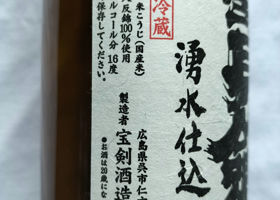 湧水仕込
冷蔵
米こうじ(国産米)
反錦100%使用
ルコール分16度
保存してください。
広島県呉市仁
製造者 宝剣酒造
●お酒は20歳にな